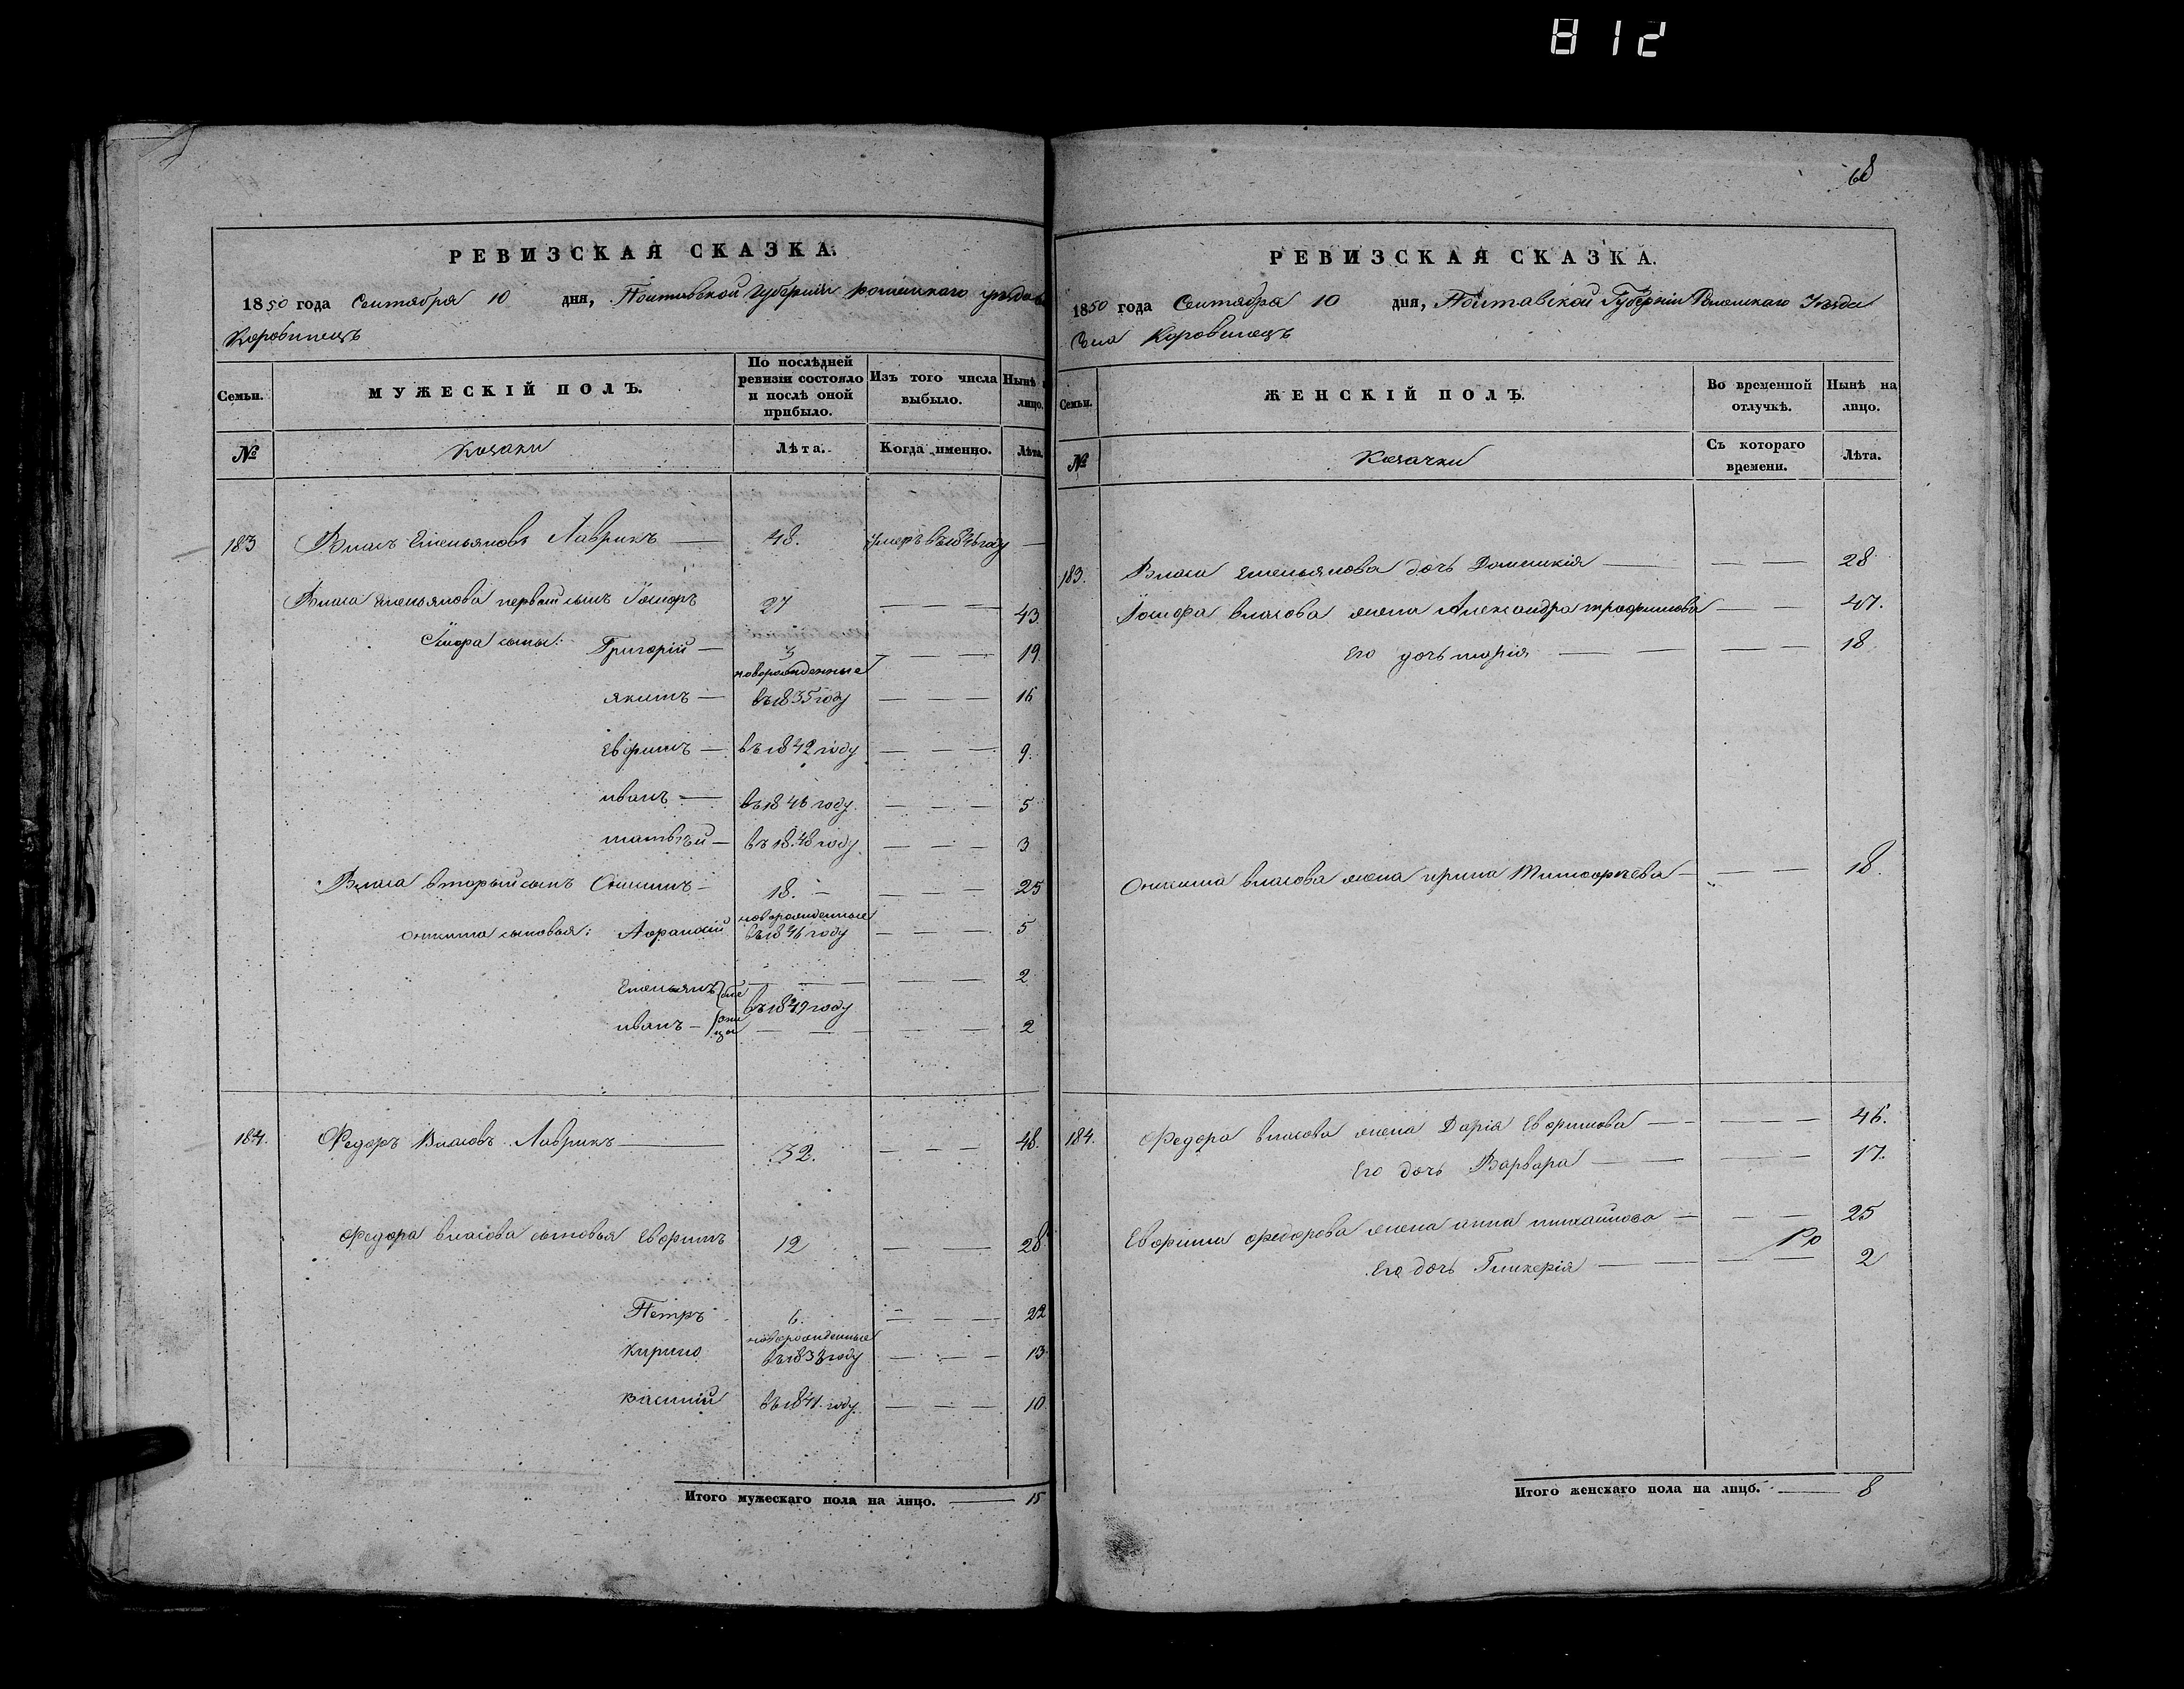 812
68
РЕВИЗСКАЯ СКАЗКА.
1850 года Сентября 10 дня, Полтавской Губерніи Роменскаго уезда
Коровинецъ
Семьи. МУЖЕСКІЙ ПОЛЪ. По послѣдней ревизіи состояло и послѣ оной прибыло. Изъ того числа выбыло. Нынѣ лицо.
№ Козаки Лѣта. Когда именно. Лѣта.
183 Власъ Емельяновъ Лаврикъ — 48. умеръ въ 1846 году —
Власа Емельянова первый сынъ Іосифъ 27 — — — 43.
сыны: Григорій — 3 — — — 19.
новорожденные
якимъ — въ 1835 году — — — 16
Евфимъ — въ 1842 году — — — 9.
иванъ — въ 1846 году. — — — 5
матвѣй — въ 1848 году — — — 3
Власа вторый сынъ Онисимъ — 18. — — — — 25
новорожденные
онисима сыновья: Афанасій въ 1846 году — — — 5
Емельянъ — — — — — — 2
въ 1849 году
иванъ — — — — — — — 2
184. Федоръ Власовъ Лаврикъ — 32. — — — 48.
Федора власова сыновья Евфимъ 12 — — 28
Петръ 6. — — — 22
новорожденные
Кирило въ 1838 году — — — 13
василій въ 1841 году — — — 10
Итого мужескаго пола на лицо. — 15
РЕВИЗСКАЯ СКАЗКА.
1850 года Сентября 10 дня, Полтавской Губерніи Роменскаго Уезда
Села Коровинецъ
Семьи. ЖЕНСКІЙ ПОЛЪ. Во временной отлучкѣ. Нынѣ на лицо.
№ Козачки Съ котораго времени. Лѣта.
183. Власа Емельянова дочь Домникія — — — 28
Іосифа власова жена Александра трофимова — — 47.
Его дочь марія — — — — 18
Онисима власова жена ирина Тимофѣева — — — 18.
184. Федора власова жена Дарія Евфимова — — — 46.
Его дочь Варвара — — — — 17.
Евфима федорова жена анна михайлова — — — 25
Его дочь Гликерія — — — — 2
Итого женскаго пола на лицо. — 8